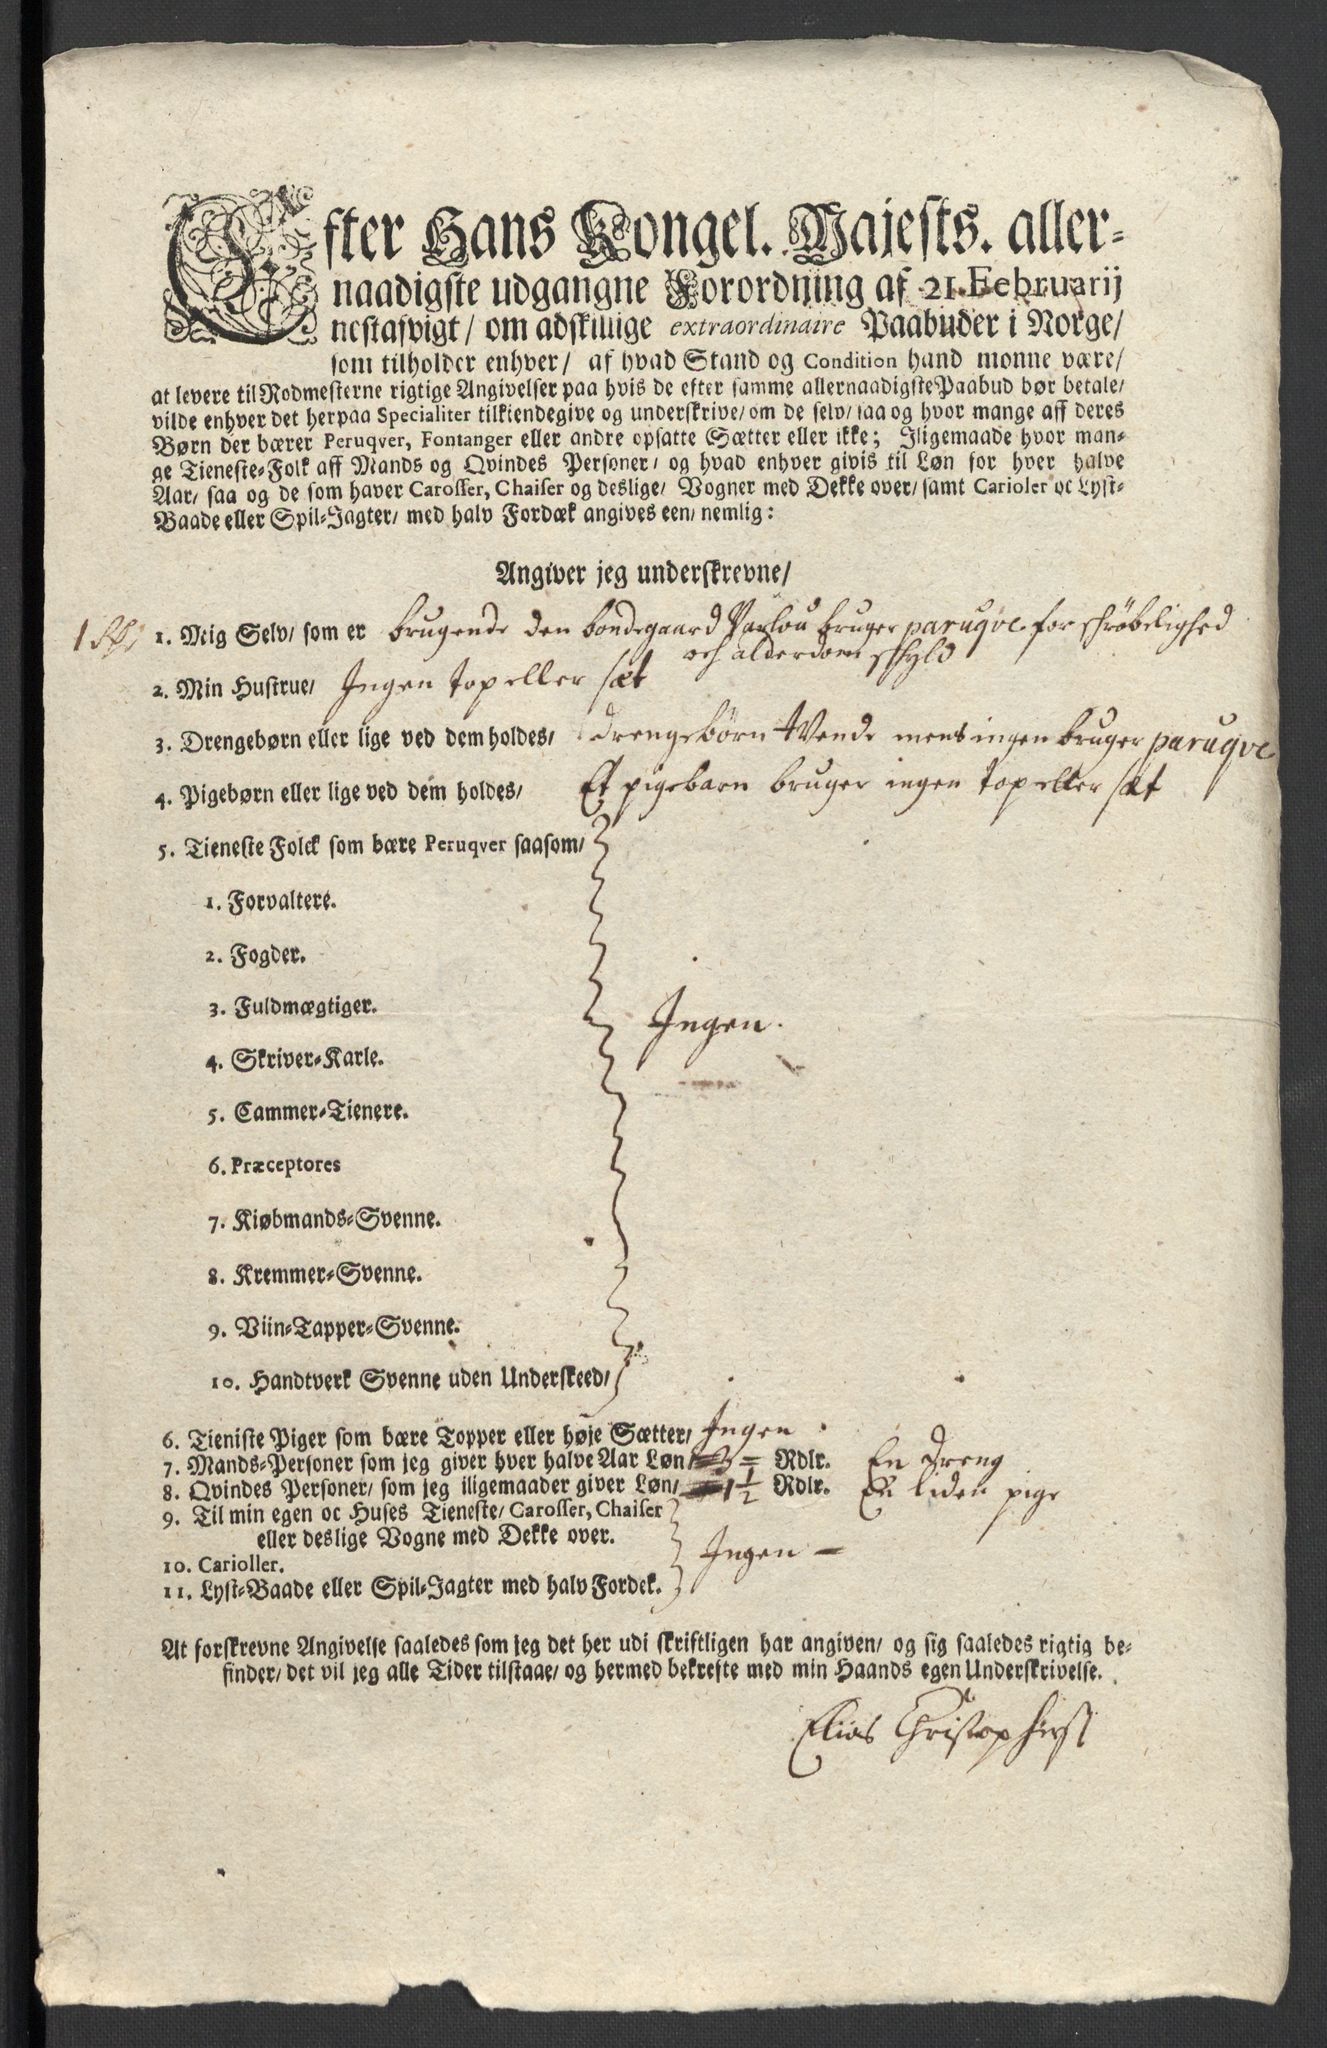 Efter Hans Kongel. Majests. aller-
naadigste udgangne Forordning af 21. Februarij
nestafvigt/ om adskillige extraordinaire Paabuder i Norge/
som tilholder enhver/ af hvad Stand og Condition hand monne være/
at levere til Rodmesterne rigtige Angivelser paa hvis de efter samme allernaadigste Paabud bør betale/
vilde enhver det herpaa Specialiter tilkiendegive og underskrive/ om de selv/ saa og hvor mange aff deres
Børn der bærer Peruqver, Fontanger eller andre opsatte Sætter eller ikke; Jligemaade hvor man-
ge Tieneste-Folk aff Mands og Qvindes Personer/ og hvad enhver givis til Løn for hver halve
Aar/ saa og de som haver Carosser, Chaiser og deslige/ Vogner med Dekke over/ samt Carioler oc Lyst-
Baade eller Spil-Jagter/ med halv Fordæk angives een/ nemlig:
Angiver jeg underskrevne/
1. Mig Selv/ som er brugende den bondegaard bruger paruqve for schrøbelighed
och alderdom schyld
2. Min Hustrue/ Ingen top eller sæt
3. Drengebørn eller lige ved dem holdes/ drengebørn tvende mens ingen bruger paruqve
4. Pigebørn eller lige ved dem holdes/ Et pigebarn bruger ingen top eller sæt
5. Tieneste Folck som bære Peruqver saasom/
1. Forvaltere.
2. Fogder.
3. Fuldmægtiger.
Ingen.
4. Skriver-Karle.
5. Cammer-Tienere.
6. Præceptores
7. Kiøbmands-Svenne.
8. Kremmer-Svenne.
9. Viin-Tapper-Svenne.
10. Handtverk Svenne uden Underskeed/
6. Tieniste Piger som bære Topper eller høje Sætter/ Ingen
7. Mands-Personer som jeg giver hver halve Aar Løn/ 3 = Rdlr. En dreng
8. Qvindes Personer/ som jeg iligemaader giver Løn/ 1 1/2 Rdlr. En liden pige
9. Til min egen oc Huses Tieneste/ Carosser, Chaiser
eller deslige Vogne med Dekke over.
Ingen =
10. Carioller.
11. Lyst-Baade eller Spil-Jagter med halv Fordek.
At forskrevne Angivelse saaledes som jeg det her udi skriftligen har angiven/ og sig saaledes rigtig be-
finder/ det vil jeg alle Tider tilstaae/ og hermed bekrefte med min Haands egen Underskrivelse.
Elias Christophers